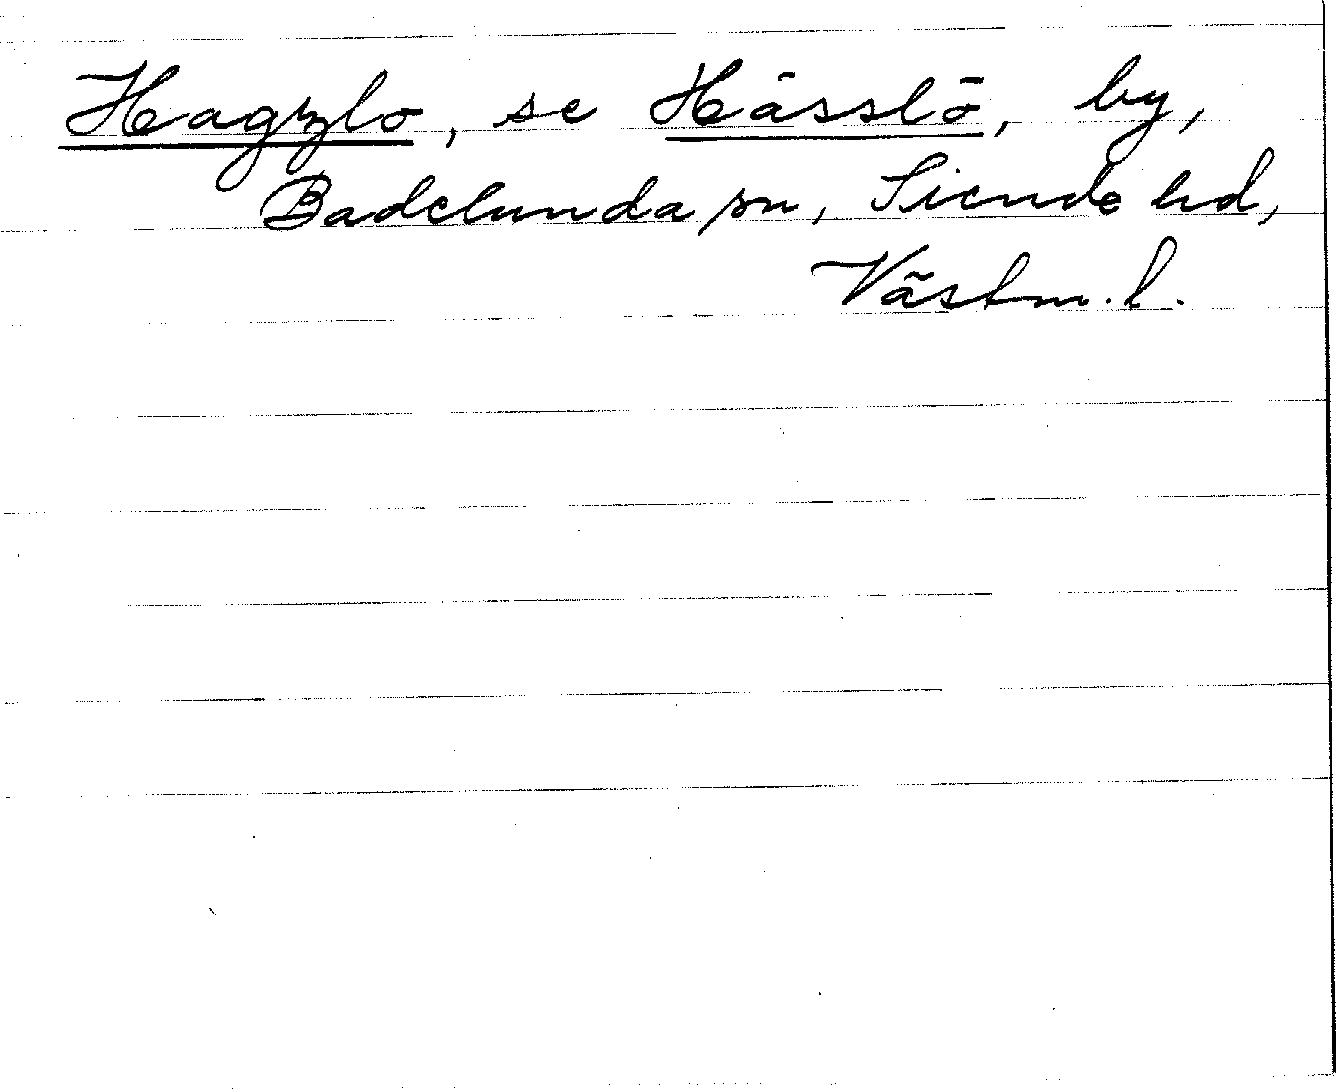 Hagzlo, se Hässlö, by,
Badelunda sn, Siende hd,
Västm. l.